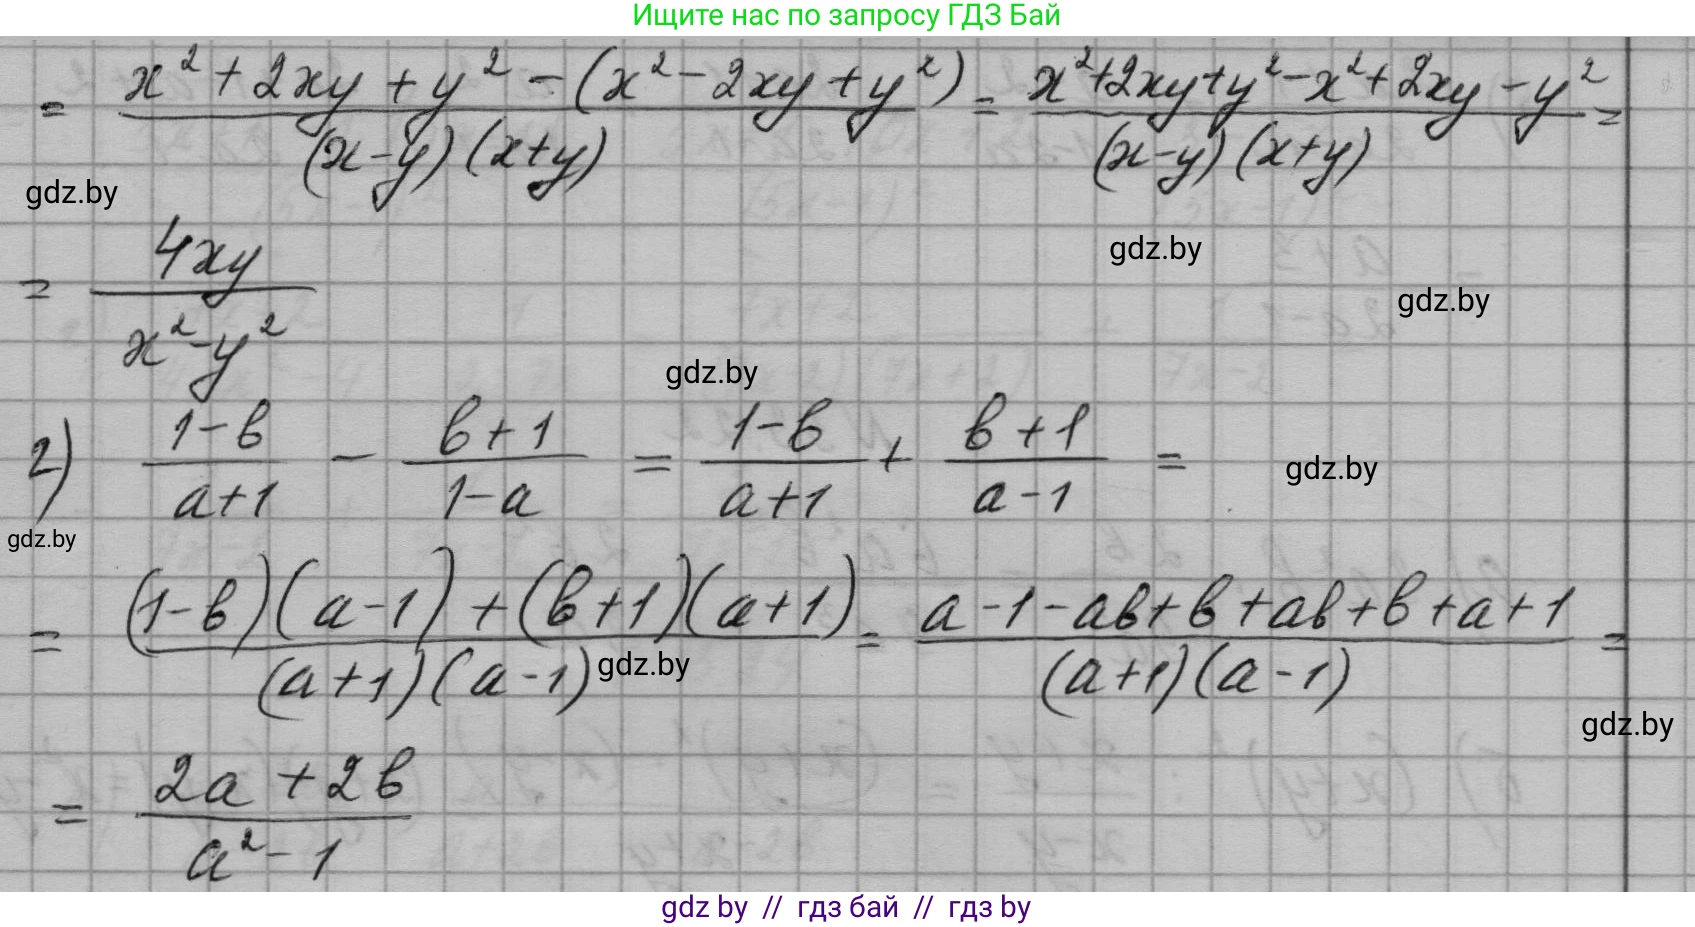 Ищите нас по запросу ГДЗ Бай
= (x² + 2xy + y² - (x² - 2xy + y²)) / ((x-y)(x+y)) = (x²+2xy+y²-x²+2xy-y²) / ((x-y)(x+y)) =
gdz.by
gdz.by
= 4xy / (x²-y²)
gdz.by
gdz.by
2) (1-в)/(a+1) - (в+1)/(1-a) = (1-в)/(a+1) + (в+1)/(a-1) =
gdz.by
gdz.by
= ((1-в)(a-1)+(в+1)(a+1)) / ((a+1)(a-1)) = (a-1-aв+в+aв+в+a+1) / ((a+1)(a-1)) =
gdz.by
gdz.by
= (2a+2в) / (a²-1)
gdz by // гдз бай // гдз by